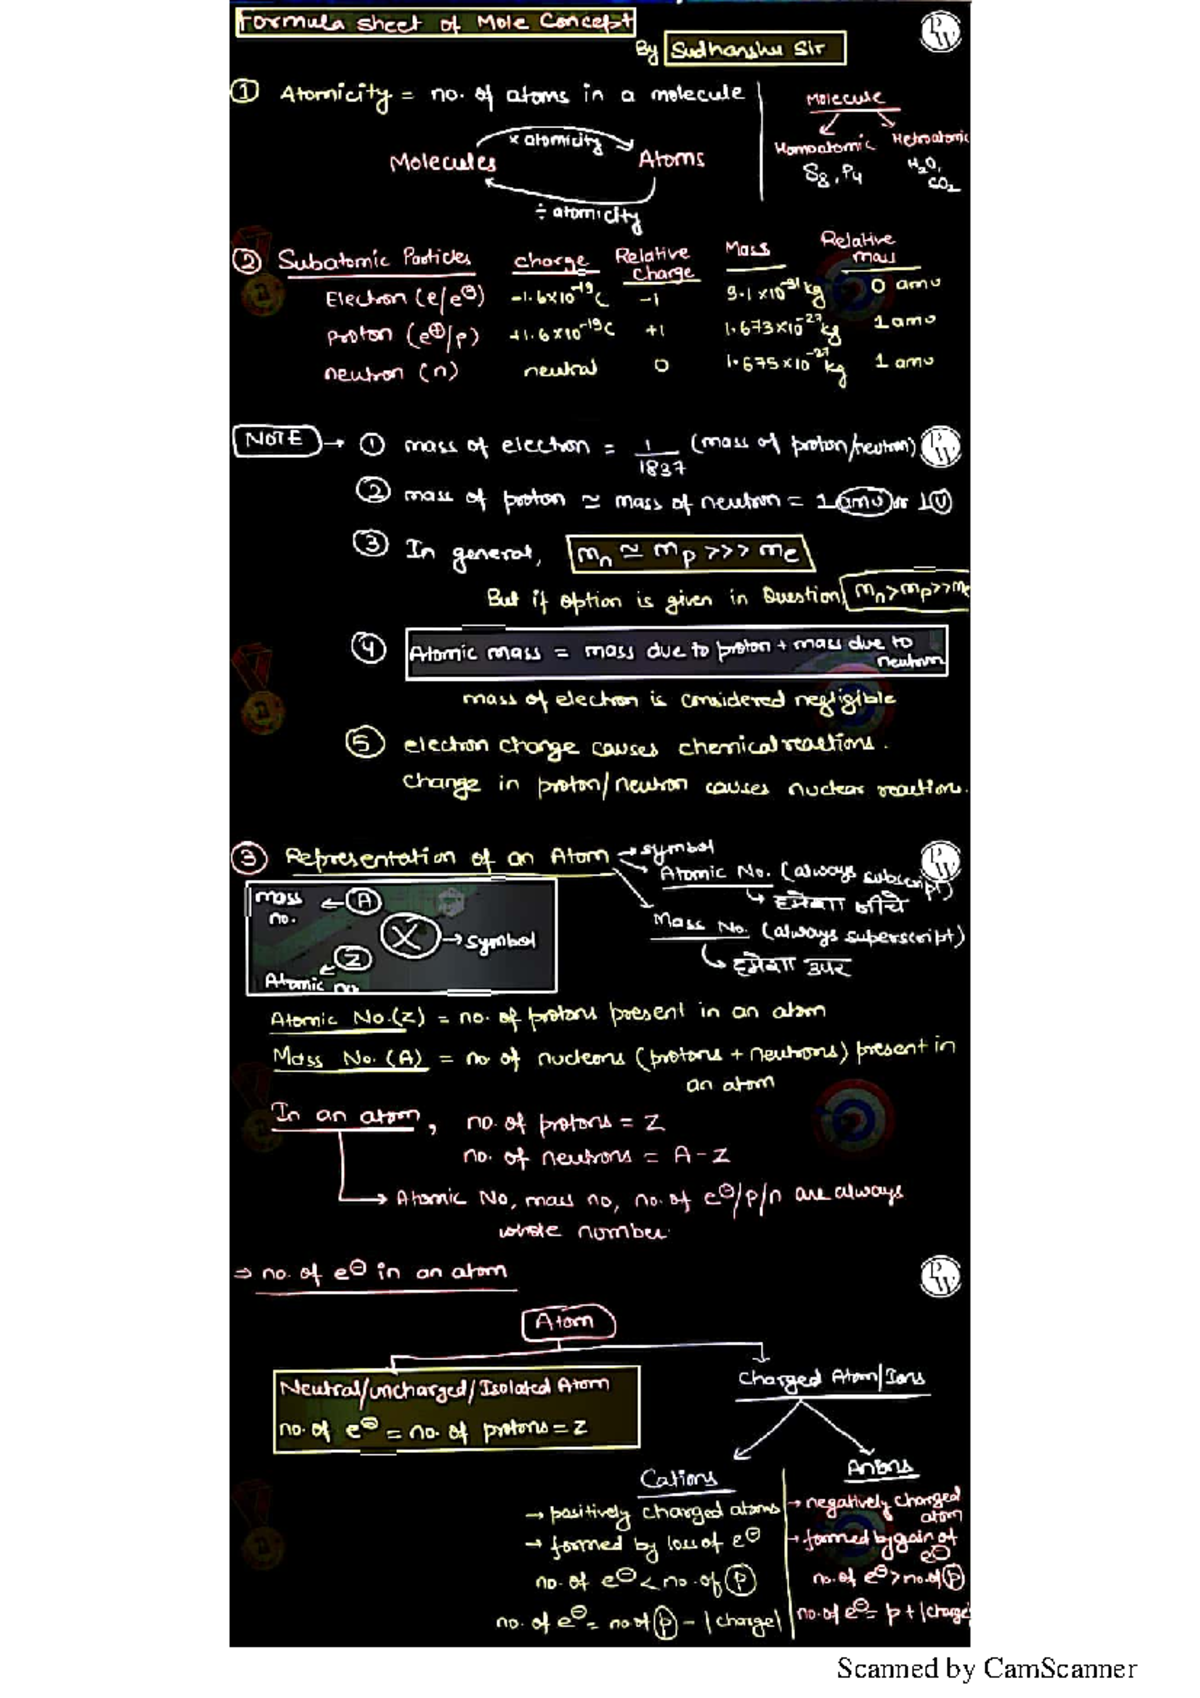 Formula sheet of Mole Concept
By Sudhanshu Sir
PW
① Atomicity = no. of atoms in a molecule
Molecule
Homoatomic Hetroatomic
S8, P4 H2O, CO2
x atomicity
Molecules Atoms
÷ atomicity
② Subatomic Particles charge Relative Charge Mass Relative mass
Electron (e/e⊖) -1.6x10^-19 C -1 9.1x10^-31 kg 0 amu
Proton (e⊕/p) +1.6x10^-19 C +1 1.673x10^-27 kg 1 amu
neutron (n) neutral 0 1.675x10^-27 kg 1 amu
NOTE → ① mass of electron = 1/1837 (mass of proton/neutron)
PW
② mass of proton ≃ mass of neutron = 1 amu or 1 U
③ In general, mn ≃ mp >>> me
But if option is given in Question, mn>mp>>me
④ Atomic mass = mass due to proton + mass due to neutron
mass of electron is considered negligible
⑤ electron change causes chemical reactions.
change in proton/neutron causes nuclear reaction.
③ Representation of an Atom → symbol
PW
Atomic No. (always subscript)
↳ हमेशा नीचे
Mass No. (always superscript)
↳ हमेशा उपर
mass no. ← A
X → symbol
Z
Atomic no.
Atomic No.(Z) = no. of protons present in an atom
Mass No. (A) = no of nucleons (protons + neutrons) present in
an atom
In an atom, no. of protons = Z
no. of neutrons = A-Z
→ Atomic No, mass no, no. of e⊖/p/n are always
whole number.
⇒ no. of e⊖ in an atom
PW
Atom
Neutral/uncharged/Isolated Atom
no. of e⊖ = no. of protons = Z
Charged Atom/Ions
Cations
→ positively charged atoms
→ formed by loss of e⊖
no. of e⊖ < no. of p
no. of e⊖ = no of p - |charge|
Anions
→ negatively charged atom
→ formed by gain of e⊖
no. of e⊖ > no. of p
no. of e⊖ = p + |charge|
Scanned by CamScanner